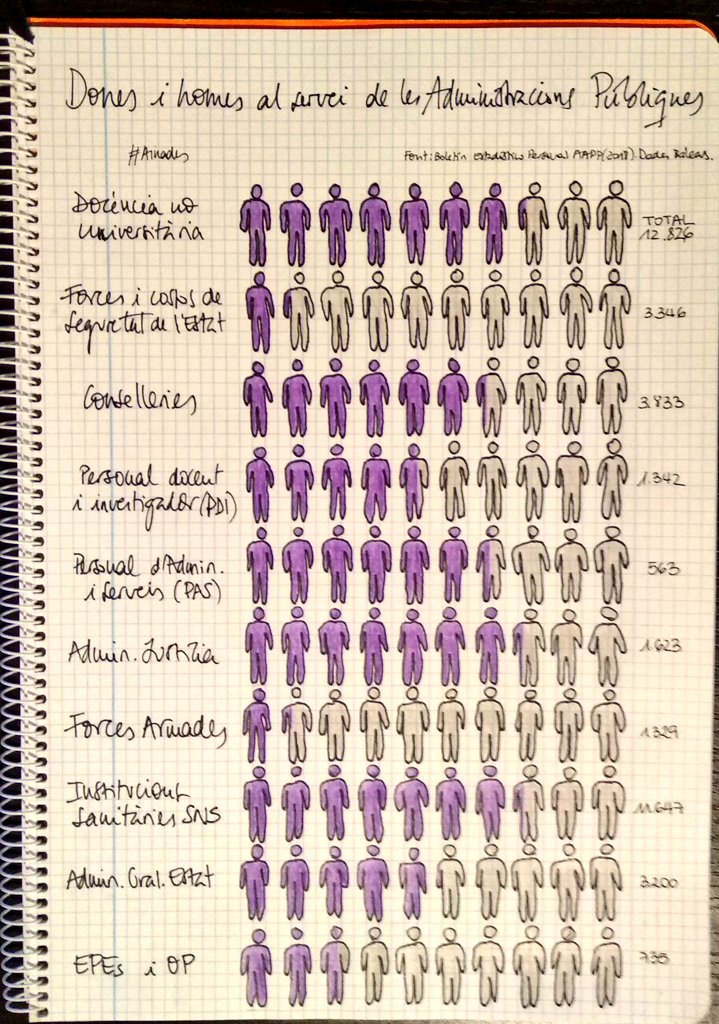 Dones i homes al servei de les Administracions Públiques
#Amades
Font: Boletín estadístico Personal AAPP (2018). Dades Balears.
Docència no
universitària
TOTAL
12.826
Forces i cossos de
seguretat de l'Estat
3.346
Conselleries
3.833
Personal docent
i investigador (PDI)
1.342
Personal d'Admin.
i Serveis (PAS)
563
Admin. Justícia
1.623
Forces Armades
1.329
Institucions
Sanitàries SNS
11.647
Admin. Gral. Estat
3.200
EPEs i OP
735